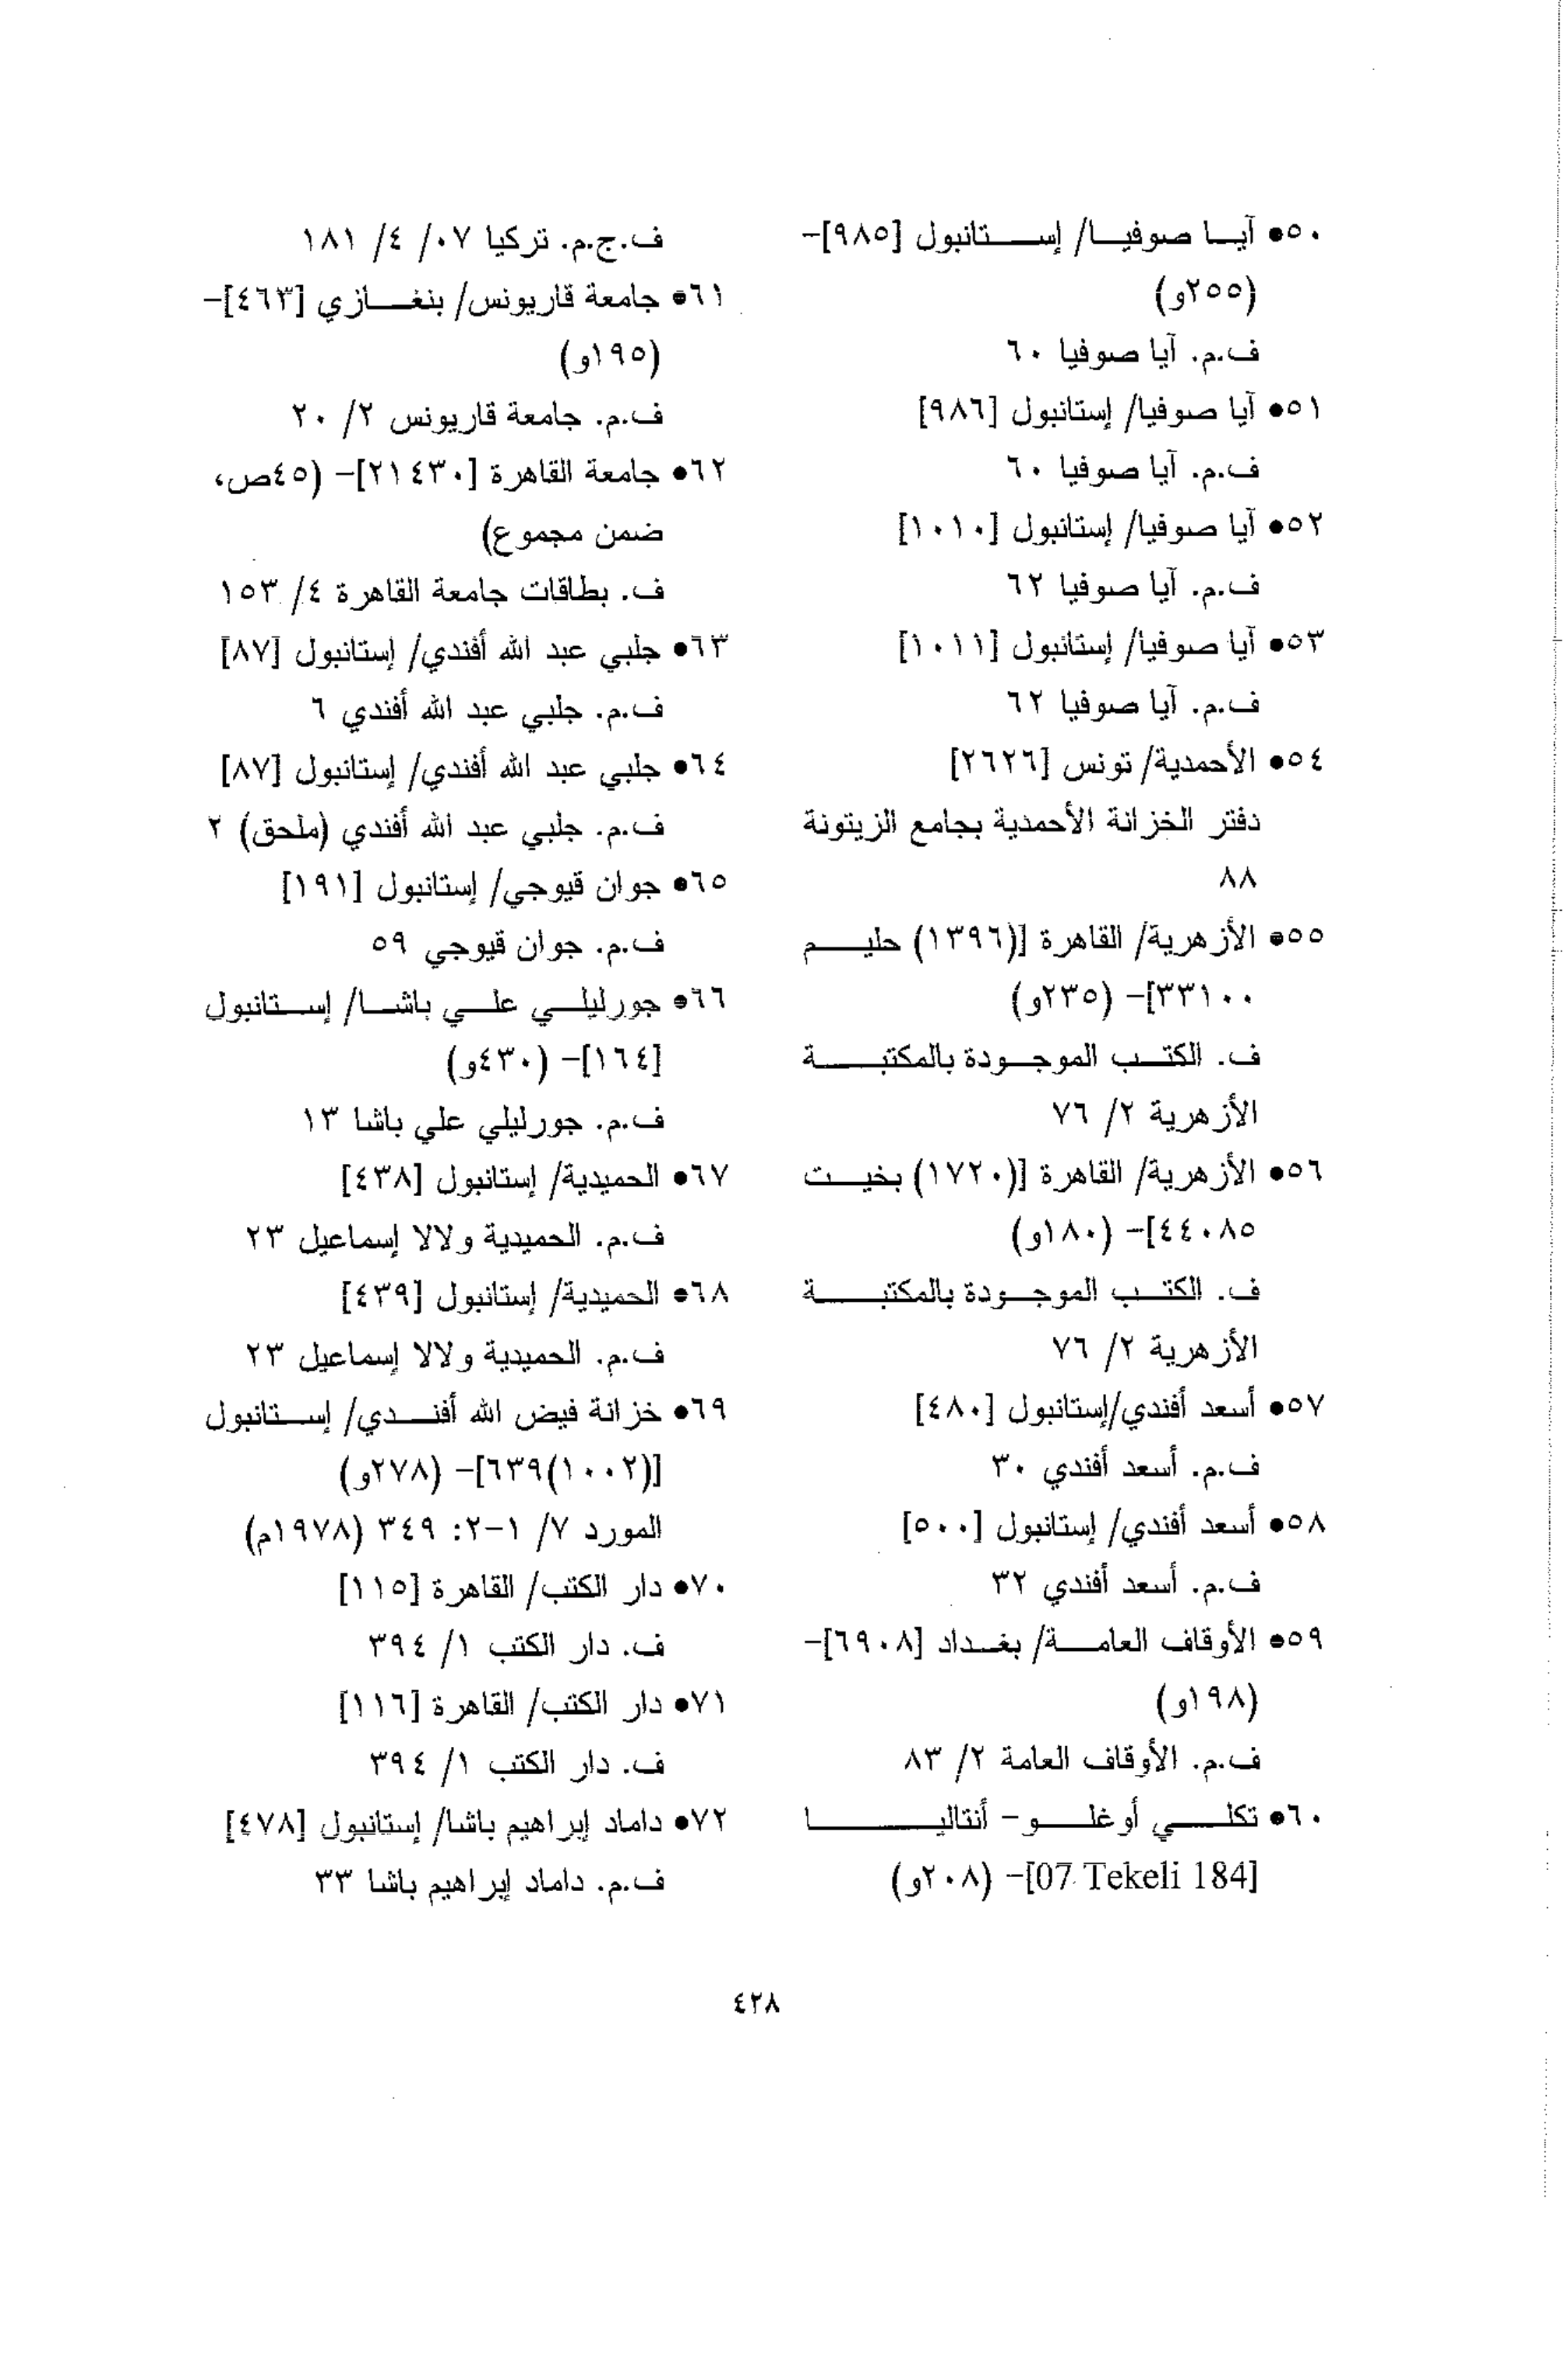 ٥٠● آيا صوفيا/ إستانبول [٩٨٥]-
(٢٥٥و)
ف.م. آيا صوفيا ٦٠
٥١● آيا صوفيا/ إستانبول [٩٨٦]
ف.م. آيا صوفيا ٦٠
٥٢● آيا صوفيا/ إستانبول [١٠١٠]
ف.م. آيا صوفيا ٦٢
٥٣● آيا صوفيا/ إستانبول [١٠١١]
ف.م. آيا صوفيا ٦٢
٥٤● الأحمدية/ تونس [٢٦٢٦]
دفتر الخزانة الأحمدية بجامع الزيتونة
٨٨
٥٥● الأزهرية/ القاهرة [(١٣٩٦) حليم
٣٣١٠٠]- (٢٣٥و)
ف. الكتب الموجودة بالمكتبة
الأزهرية ٢/ ٧٦
٥٦● الأزهرية/ القاهرة [(١٧٢٠) بخيت
٤٤٠٨٥]- (١٨٠و)
ف. الكتب الموجودة بالمكتبة
الأزهرية ٢/ ٧٦
٥٧● أسعد أفندي/إستانبول [٤٨٠]
ف.م. أسعد أفندي ٣٠
٥٨● أسعد أفندي/ إستانبول [٥٠٠]
ف.م. أسعد أفندي ٣٢
٥٩● الأوقاف العامة/ بغداد [٦٩٠٨]-
(١٩٨و)
ف.م. الأوقاف العامة ٢/ ٨٣
٦٠● تكلي أوغلو- أنتاليا
[07 Tekeli 184]- (٢٠٨و)
ف.ج.م. تركيا ٠٧/ ٤/ ١٨١
٦١● جامعة قاريونس/ بنغازي [٤٦٣]-
(١٩٥و)
ف.م. جامعة قاريونس ٢/ ٢٠
٦٢● جامعة القاهرة [٢١٤٣٠]- (٤٥ص،
ضمن مجموع)
ف. بطاقات جامعة القاهرة ٤/ ١٥٣
٦٣● جلبي عبد الله أفندي/ إستانبول [٨٧]
ف.م. جلبي عبد الله أفندي ٦
٦٤● جلبي عبد الله أفندي/ إستانبول [٨٧]
ف.م. جلبي عبد الله أفندي (ملحق) ٢
٦٥● جوان قيوجي/ إستانبول [١٩١]
ف.م. جوان قيوجي ٥٩
٦٦● جورليلي علي باشا/ إستانبول
[١٦٤]- (٤٣٠و)
ف.م. جورليلي علي باشا ١٣
٦٧● الحميدية/ إستانبول [٤٣٨]
ف.م. الحميدية ولالا إسماعيل ٢٣
٦٨● الحميدية/ إستانبول [٤٣٩]
ف.م. الحميدية ولالا إسماعيل ٢٣
٦٩● خزانة فيض الله أفندي/ إستانبول
[(١٠٠٢)٦٣٩]- (٢٧٨و)
المورد ٧/ ١-٢: ٣٤٩ (١٩٧٨م)
٧٠● دار الكتب/ القاهرة [١١٥]
ف. دار الكتب ١/ ٣٩٤
٧١● دار الكتب/ القاهرة [١١٦]
ف. دار الكتب ١/ ٣٩٤
٧٢● داماد إبراهيم باشا/ إستانبول [٤٧٨]
ف.م. داماد إبراهيم باشا ٣٣
٤٢٨